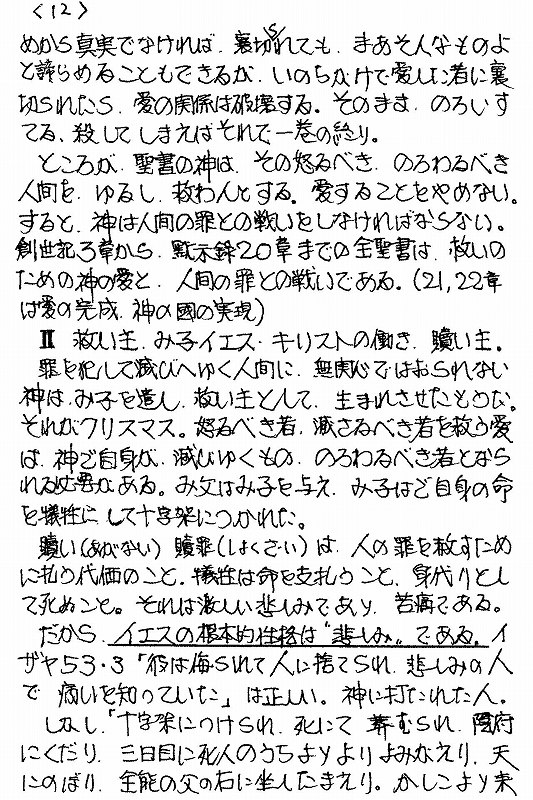 〈12〉
めから真実でなければ、裏切られても、まあそんなものよ
と諦らめることもできるが、いのちがけで愛した者に裏
切られたら、愛の関係は破壊する。そのまま、のろいす
てる、殺してしまえばそれで一巻の終り。
ところが、聖書の神は、その怒るべき、のろわるべき
人間を、ゆるし、救わんとする。愛することをやめない。
すると、神は人間の罪との戦いをしなければならない。
創世記3章から、黙示録20章までの全聖書は、救いの
ための神の愛と、人間の罪との戦いである。(21,22章
は愛の完成、神の國の実現)
Ⅱ 救い主、み子イエス・キリストの働き、贖い主。
罪を犯して滅びへゆく人間に、無関心ではおられない
神は、み子を遣し、救い主として、生まれさせたもうた。
それがクリスマス。怒るべき者、滅さるべき者を救う愛
は、神ご自身が、滅びゆくもの、のろわるべき者となら
れる必要がある。み父はみ子を与え、み子はご自身の命
を犠牲にして十字架につかれた。
贖い(あがない)贖罪(しょくざい)は、人の罪を赦すため
に払う代価のこと。犠牲は命を支払うこと、身代りとし
て死ぬこと。それは激しい悲しみであり、苦痛である。
だから、イエスの根本的性格は"悲しみ"である。イ
ザヤ53・3「彼は侮られて人に捨てられ、悲しみの人
で 病いを知っていた」は正しい。神に打たれた人。
しかし、「十字架につけられ、死にて 葬むられ、陰府
にくだり、三日目に死人のうちよりよりよみがえり、天
にのぼり、全能の父の右に坐したまえり。かしこより来